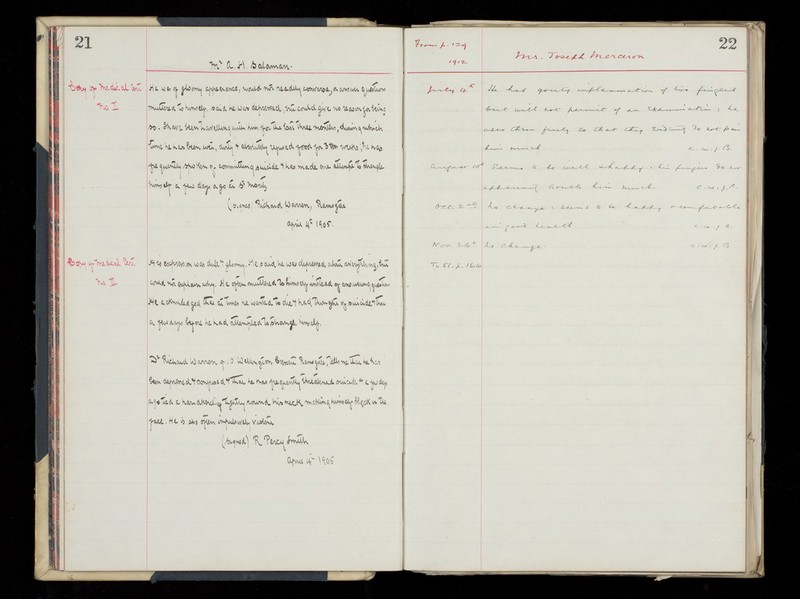 21
Mr A. H. Salaman.
Copy of Medical Cert
No I
He was of gloomy appearance, would not readily converse, or answer questions
muttered to himself, said he was depressed, but could give no reason for being
so. I have been travelling with him for the last three months, during which
time he has been wet, dirty & absolutely refused food for 3 weeks, he has
frequently spoken of committing suicide & has made one attempt to strangle
himself a few days ago
(signed) Richard Warren, Ramsgate
April 4th 1905.
Copy of Medical Cert
No II
His expression was dull & gloomy. He said he was depressed about everything, but
could not explain why. He often muttered to himself instead of answering questions
He acknowledged that at times he wanted to die & had thoughts of suicide & that
a few days before he had attempted to strangle himself.
Dr Richard Warren of Wellington Crescent Ramsgate, tells me that he has
been depressed & & that he has frequently threatened suicide & a few days
ago tied a handkerchief tightly round his neck making himself black in the
face. He is also often impulsively violent
(signed) R Percy Smith
April 4th 1905
22
From p. 129
1912
Mr. Joseph Merceron
July 4th He had gouty inflammation of his fingers
but will not permit of an examination; he
uses them freely so that they evidently do not pain
him much
August 10th Seems to be well & happy - his fingers do not
apparently trouble him much.
Oct. 2nd No change - seems to be happy & comfortable
& in good health
Nov. 26th No change
To p. 166